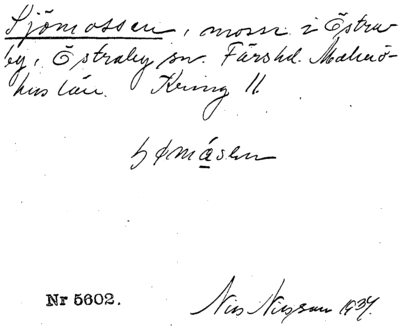 Sjömossen, mosse i Östra-
by, Östraby sn. Färs hd. Malmö-
hus län. Kring 11
ɧømåsen
Nr 5602.
Nils Nilsson 1937.